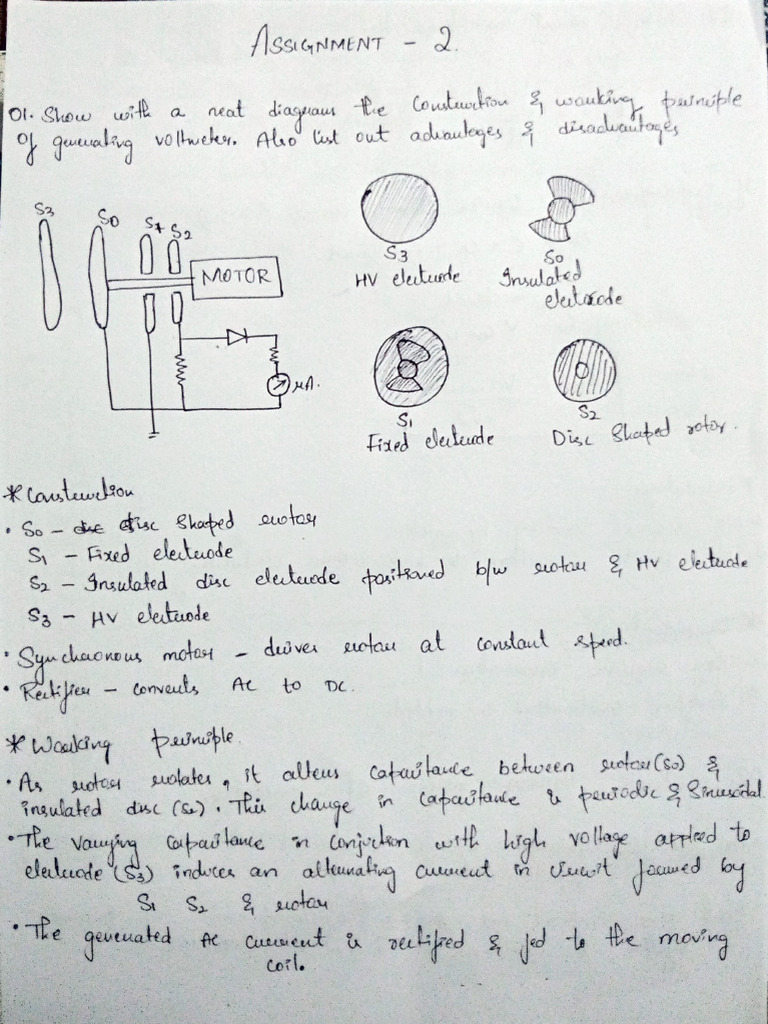 ASSIGNMENT - 2.
01. Show with a neat diagram the Construction & working principle
Of generating voltmeter. Also list out advantages & disadvantages
S3
S0
S1
S2
MOTOR
μA.
S3
HV electrode
S0
Insulated
electrode
S1
Fixed electrode
S2
Disc Shaped rotor.
* Construction
• S0 - disc Shaped rotor
S1 - Fixed electrode
S2 - Insulated disc electrode positioned b/w rotor & HV electrode
S3 - HV electrode
• Synchronous motor - drives rotor at constant speed.
• Rectifier - converts AC to DC.
* Working principle.
• As rotor rotates, it alters capacitance between rotor (S0) &
insulated disc (S2). This change in capacitance is periodic & Sinusoidal
• The varying capacitance in conjuction with high voltage applied to
electrode (S3) induces an alternating current in circuit formed by
S1 S2 & rotor
• The generated AC current is rectified & fed to the moving
coil.